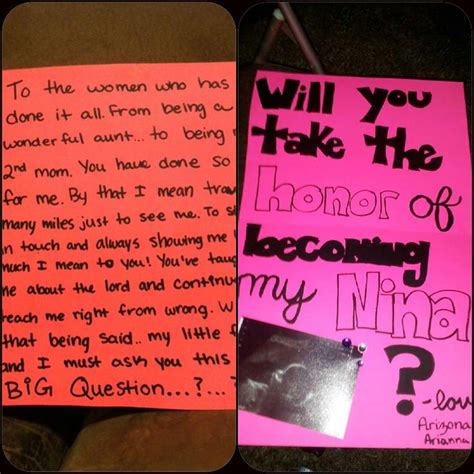 To the women who has
done it all. From being a
wonderful aunt... to being
2nd mom. You have done so
for me. By that I mean
many miles just to see me. To
in touch and always showing me
much I mean to you! You've
me about the lord and
teach me right from wrong.
that being said.. my little
and I must ask you this
BIG Question...?...?
Will you
take the
honor of
becoming
my Nina
?
-love
Arizona
Arianna